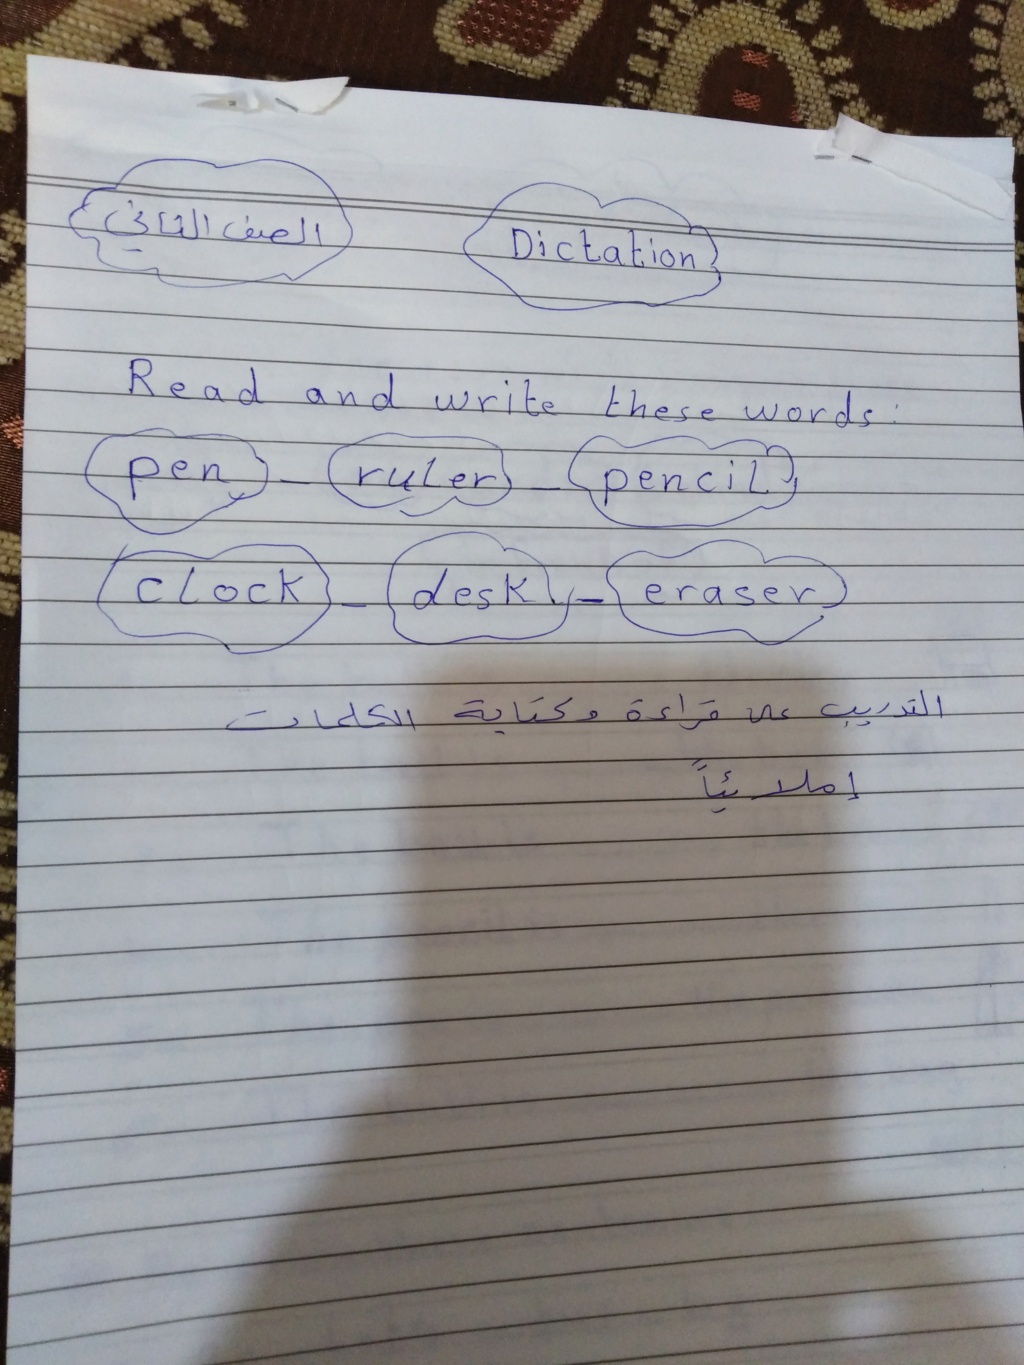 الصف الثاني
Dictation
Read and write these words:
pen - ruler - pencil
clock - desk - eraser
التدريب على قراءة وكتابة الكلمات
إملائياً